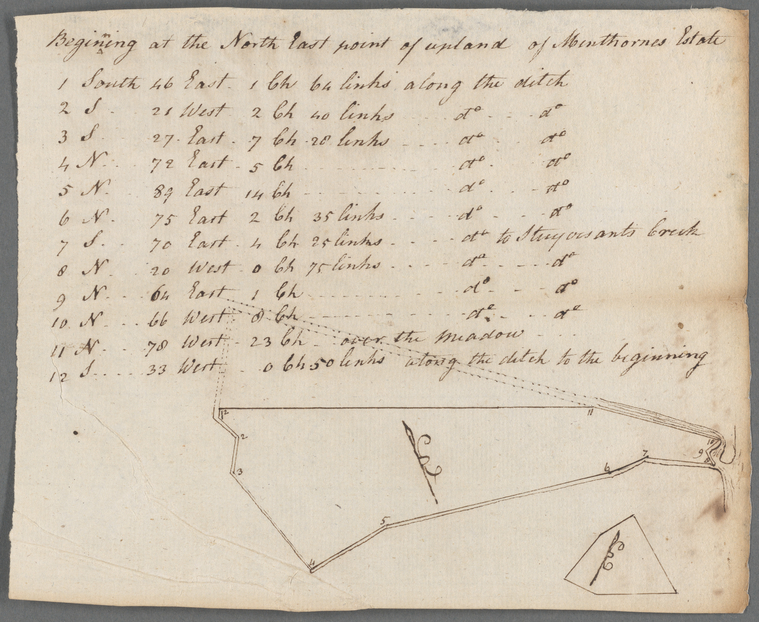 Begining at the North East point of upland of Minthornes Estate
1 South 46 East 1 Ch 64 links along the ditch
2 S. 21 West 2 Ch 40 links do do
3 S. 27 East 7 Ch 28 links do do
4 N. 72 East 5 Ch do do
5 N. 89 East 14 Ch do do
6 N. 75 East 2 Ch 35 links do do
7 S. 70 East 4 Ch 25 links do to Stuyvisants Creek
8 N. 20 West 0 Ch 75 links do do
9 N. 64 East 1 Ch do do
10 N. 66 West 8 Ch do do
11 N. 78 West 23 Ch over the meadow
12 S. 33 West 0 Ch 50 links along the ditch to the beginning
12 11
2
3
4
5
6
7
9